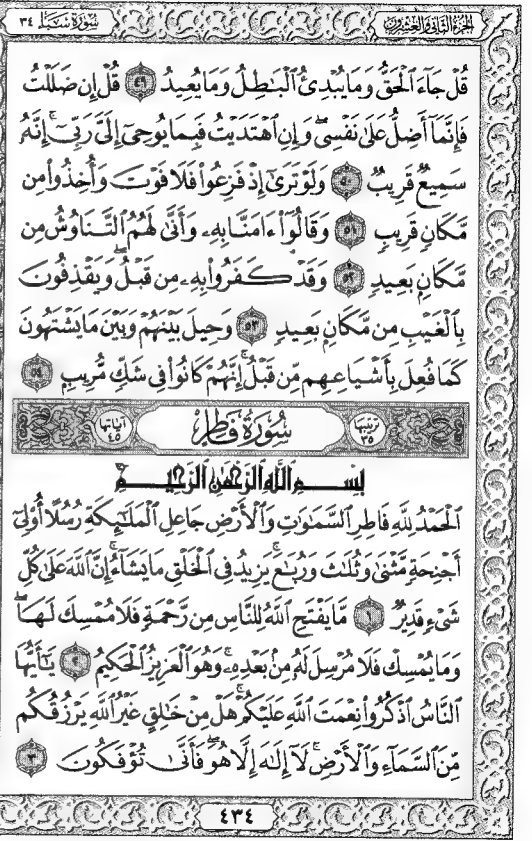 الجزء الثاني والعشرون سورة سبإ ٣٤
قُلْ جَآءَ ٱلْحَقُّ وَمَا يُبْدِئُ ٱلْبَٰطِلُ وَمَا يُعِيدُ ٤٩ قُلْ إِن ضَلَلْتُ
فَإِنَّمَآ أَضِلُّ عَلَىٰ نَفْسِىۖ وَإِنِ ٱهْتَدَيْتُ فَبِمَا يُوحِىٓ إِلَىَّ رَبِّىٓۚ إِنَّهُۥ
سَمِيعٌ قَرِيبٌ ٥٠ وَلَوْ تَرَىٰٓ إِذْ فَزِعُوا۟ فَلَا فَوْتَ وَأُخِذُوا۟ مِن
مَّكَانٍ قَرِيبٍ ٥١ وَقَالُوٓا۟ ءَامَنَّا بِهِۦ وَأَنَّىٰ لَهُمُ ٱلتَّنَاوُشُ مِن
مَّكَانٍۭ بَعِيدٍ ٥٢ وَقَدْ كَفَرُوا۟ بِهِۦ مِن قَبْلُۖ وَيَقْذِفُونَ
بِٱلْغَيْبِ مِن مَّكَانٍۭ بَعِيدٍ ٥٣ وَحِيلَ بَيْنَهُمْ وَبَيْنَ مَا يَشْتَهُونَ
كَمَا فُعِلَ بِأَشْيَاعِهِم مِّن قَبْلُۚ إِنَّهُمْ كَانُوا۟ فِى شَكٍّ مُّرِيبٍۭ ٥٤
ترتيبها ٣٥ سُورَةُ فَاطِرٍ آياتها ٤٥
بِسْمِ ٱللَّهِ ٱلرَّحْمَٰنِ ٱلرَّحِيمِ
ٱلْحَمْدُ لِلَّهِ فَاطِرِ ٱلسَّمَٰوَٰتِ وَٱلْأَرْضِ جَاعِلِ ٱلْمَلَٰٓئِكَةِ رُسُلًا أُو۟لِىٓ
أَجْنِحَةٍ مَّثْنَىٰ وَثُلَٰثَ وَرُبَٰعَۚ يَزِيدُ فِى ٱلْخَلْقِ مَا يَشَآءُۚ إِنَّ ٱللَّهَ عَلَىٰ كُلِّ
شَىْءٍ قَدِيرٌ ١ مَّا يَفْتَحِ ٱللَّهُ لِلنَّاسِ مِن رَّحْمَةٍ فَلَا مُمْسِكَ لَهَاۖ
وَمَا يُمْسِكْ فَلَا مُرْسِلَ لَهُۥ مِنۢ بَعْدِهِۦۚ وَهُوَ ٱلْعَزِيزُ ٱلْحَكِيمُ ٢ يَٰٓأَيُّهَا
ٱلنَّاسُ ٱذْكُرُوا۟ نِعْمَتَ ٱللَّهِ عَلَيْكُمْۚ هَلْ مِنْ خَٰلِقٍ غَيْرُ ٱللَّهِ يَرْزُقُكُم
مِّنَ ٱلسَّمَآءِ وَٱلْأَرْضِۚ لَآ إِلَٰهَ إِلَّا هُوَۖ فَأَنَّىٰ تُؤْفَكُونَ ٣
٤٣٤